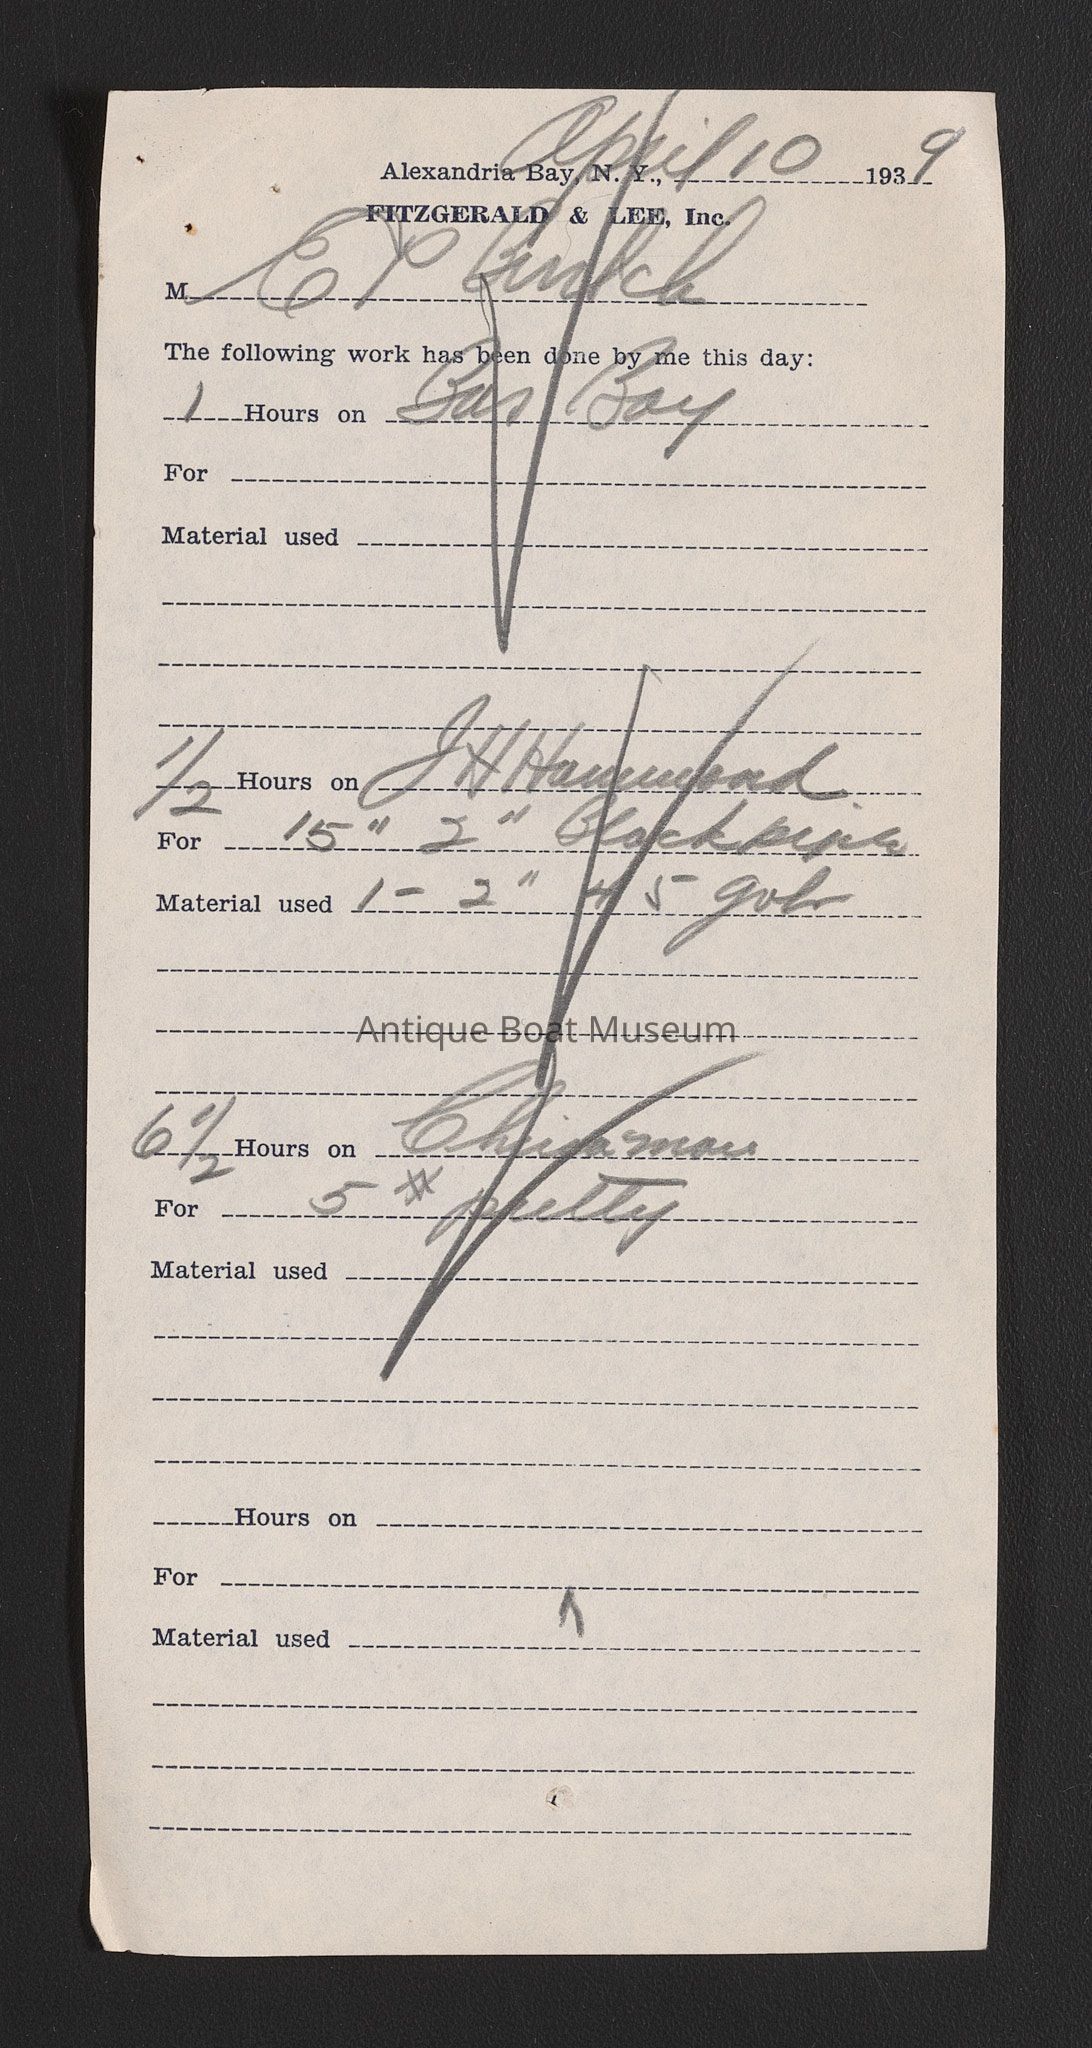 Alexandria Bay, N. Y., April 10 1939
FITZGERALD & LEE, Inc.
M E P
The following work has been done by me this day:
1 Hours on Boy
For
Material used
1/2 Hours on J H Hammond
For 15" 2" Black pipe
Material used 1 - 2" 45
Antique Boat Museum
6 1/2 Hours on
For 5 #
Material used
Hours on
For
Material used